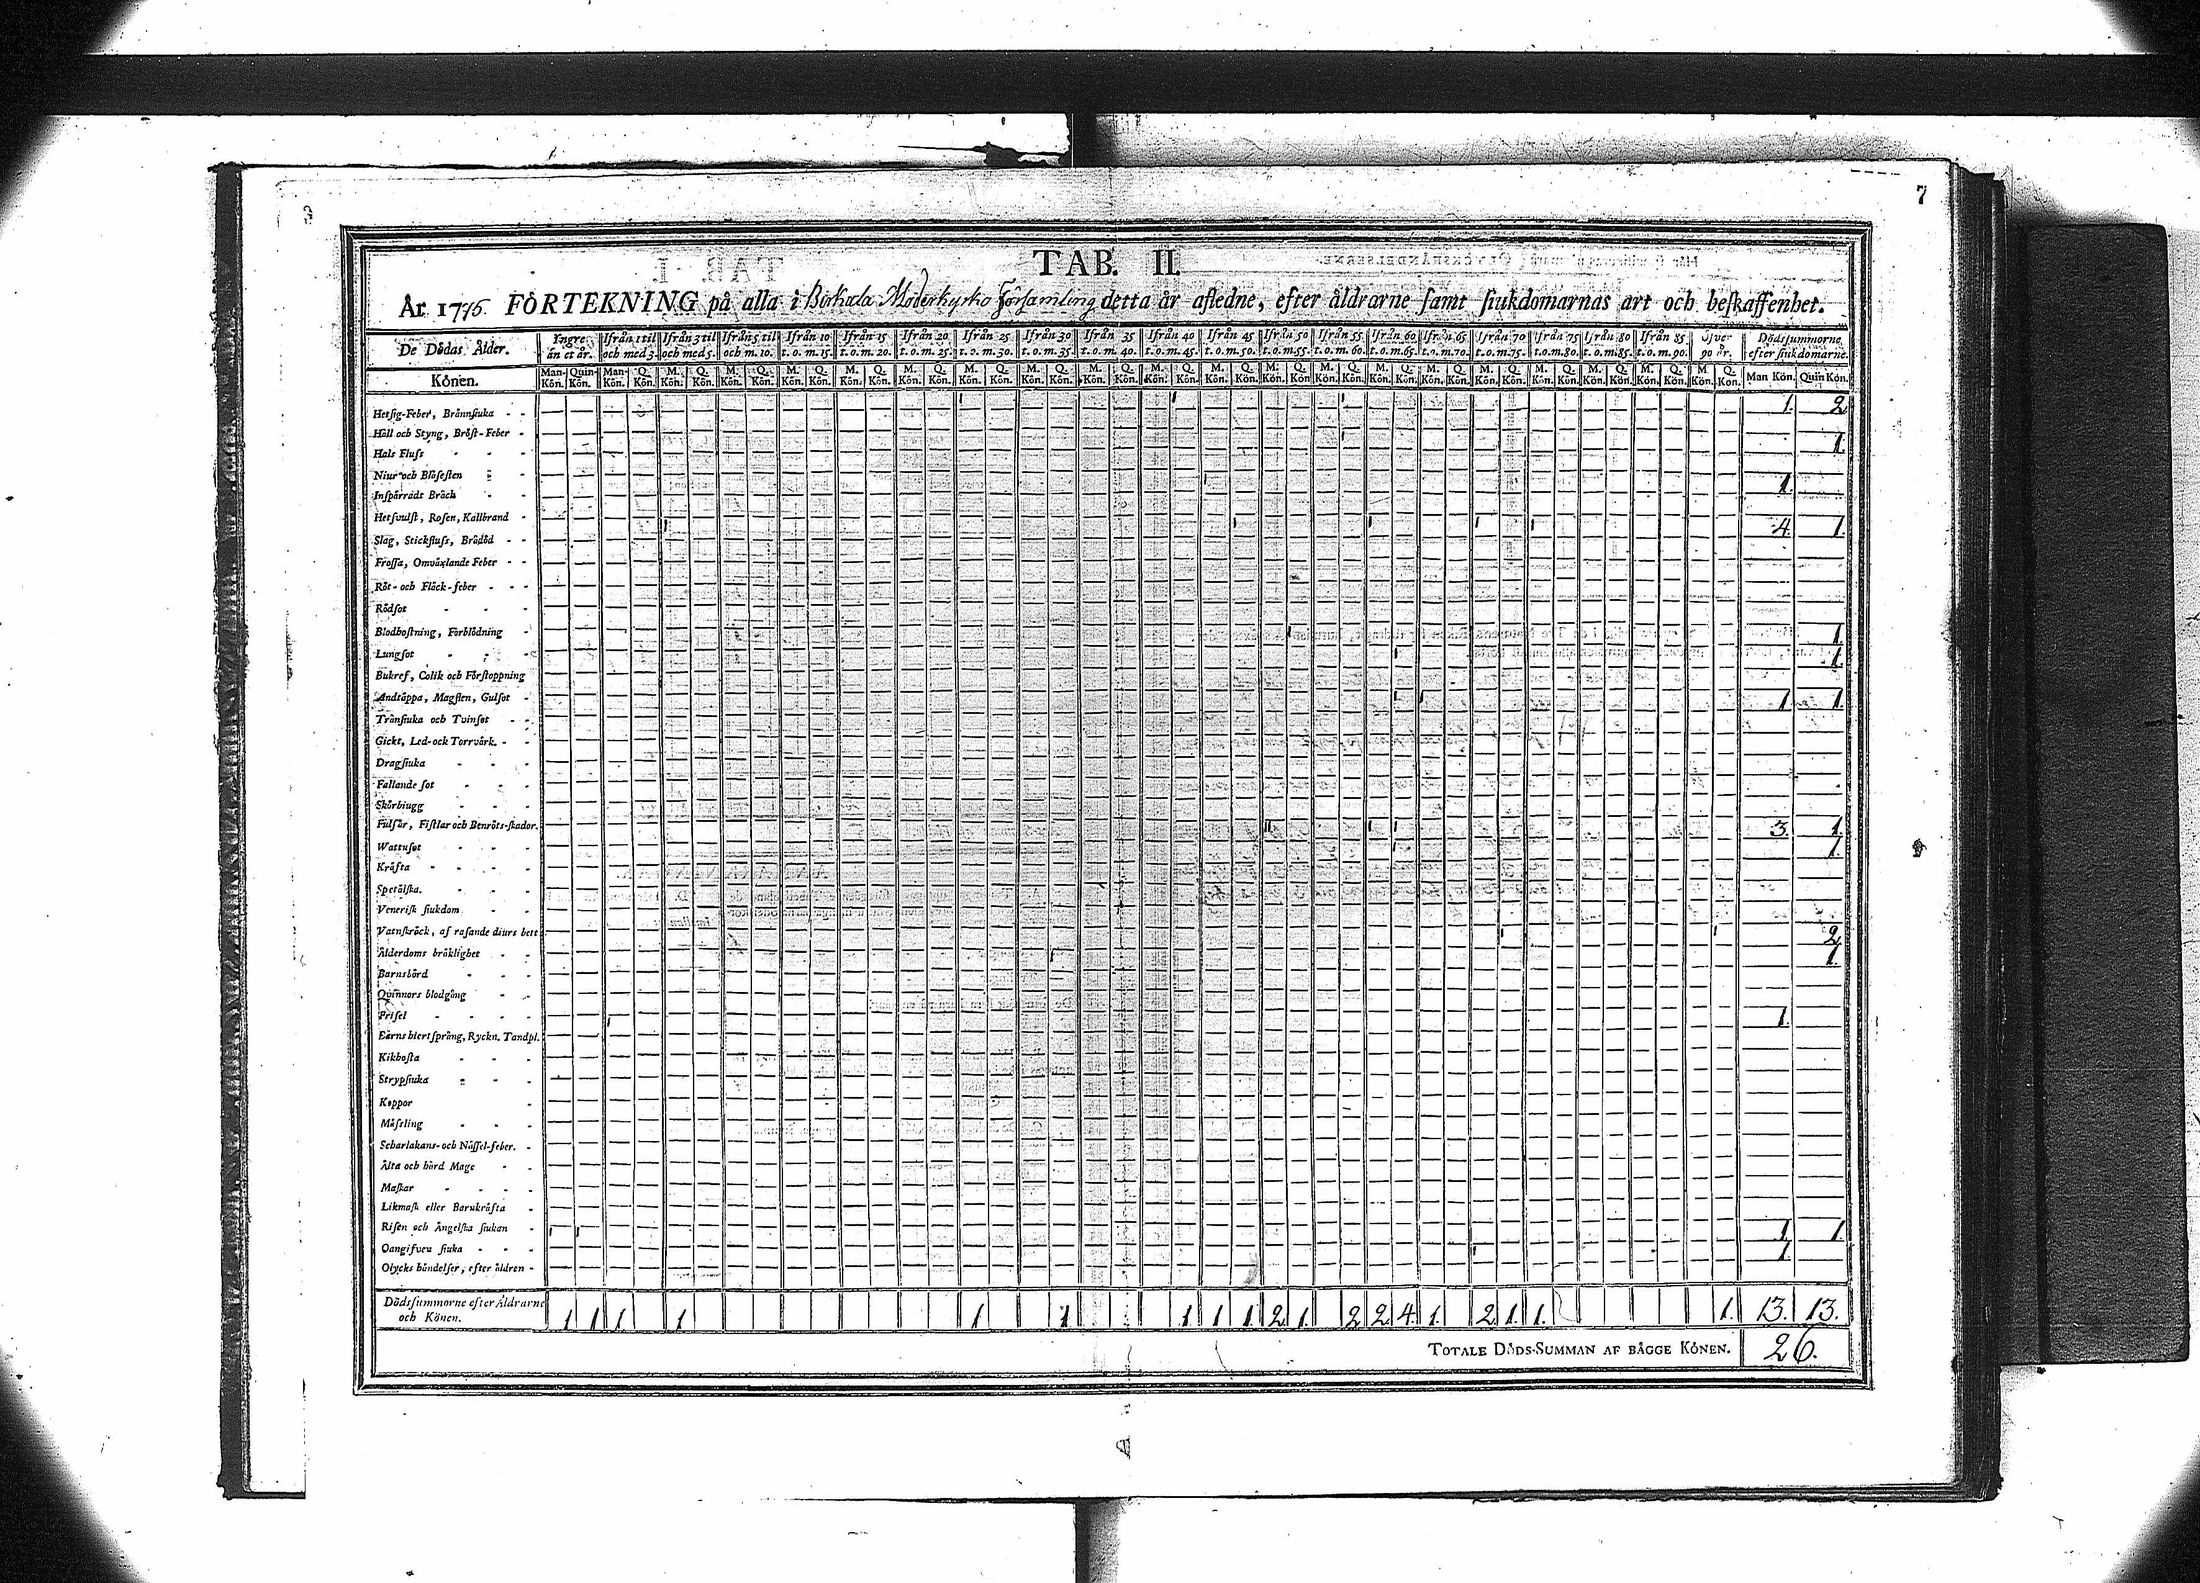 7
TAB. II.
År 1775. FÖRTEKNING på alla i Birkala Moderkyrko Församling detta år afledne, efter åldrarne samt siukdomarnas art och beskaffenhet.
De Dödas Ålder. Yngre än et år. Ifrån 1 til och med 3. Ifrån 3 til och med 5. Ifrån 5 til och m. 10. Ifrån 10 t.o.m. 15. Ifrån 15 t.o.m. 20. Ifrån 20 t.o.m. 25. Ifrån 25 t.o.m. 30. Ifrån 30 t.o.m. 35. Ifrån 35 t.o.m. 40. Ifrån 40 t.o.m. 45. Ifrån 45 t.o.m. 50. Ifrån 50 t.o.m. 55. Ifrån 55 t.o.m. 60. Ifrån 60 t.o.m. 65. Ifrån 65 t.o.m. 70. Ifrån 70 t.o.m. 75. Ifrån 75 t.o.m. 80. Ifrån 80 t.o.m. 85. Ifrån 85 t.o.m. 90. Öfver 90 år. Dödssummorne efter siukdomarne.
Könen. Man-Kön. Quin-Kön. Man-Kön. Q. Kön. M. Kön. Q. Kön. M. Kön. Q. Kön. M. Kön. Q. Kön. M. Kön. Q. Kön. M. Kön. Q. Kön. M. Kön. Q. Kön. M. Kön. Q. Kön. M. Kön. Q. Kön. M. Kön. Q. Kön. M. Kön. Q. Kön. M. Kön. Q. Kön. M. Kön. Q. Kön. M. Kön. Q. Kön. M. Kön. Q. Kön. M. Kön. Q. Kön. M. Kön. Q. Kön. M. Kön. Q. Kön. M. Kön. Q. Kön. M. Kön. Q. Kön. Man Kön. Quin Kön.
Hetsig-Feber, Brännsiuka - - 1 1 1 1. 2
Håll och Styng, Bröst-Feber - 1 1.
Hals Fluss - - -
Niur och Blåsesten - - 1 1.
Inspärradt Bråck - -
Hetsvulst, Rosen, Kallbrand - 1 1 1 1 1 4. 1.
Slag, Stickfluss, Brådöd - -
Frossa, Omväxlande Feber - -
Röt- och Fläck-feber - - -
Rödsot - - -
Blodhostning, Förblödning - 1 1.
Lungsot - - - 1 1.
Bukref, Colik och Förstoppning
Andtäppa, Magsien, Gulsot - 1 1 1. 1.
Trånsiuka och Tvinsot - -
Gickt, Led- ock Torrvärk. - -
Dragsiuka - - -
Fallande sot - - -
Skörbiugg - - -
Fulsår, Fistlar och Benröts-skador. 11 1 1 3. 1.
Wattusot - - - 1.
Kräfta - - - -
Spetälska. - - -
Venerisk siukdom. - -
Vatnskräck, af rasande diurs bett 1 1 2
Ålderdoms bräklighet - - 1 1.
Barnsbörd - - -
Qvinnors blodgång - -
Frisel - - - - 1 1.
Barns hiertsprång, Ryckn. Tandpl.
Kikhosta - - -
Strypsiuka - - -
Koppor -
Mässling - - -
Scharlakans- och Nässel-feber. -
Älta och hård Mage - -
Maskar - - - -
Likmask eller Barnkräfta -
Risen och Ängelska siukan - 1 1 1 1.
Oangifven siuka - - - 1 1.
Olycks händelser, efter åldren -
Dödssummorne efter Åldrarne
och Könen. 1 1 1. 1 1. 1 1 1 1 2 1. 2 2 4 1. 2 1. 1. 1. 13. 13.
TOTALE DÖDS-SUMMAN AF BÄGGE KÖNEN. 26.